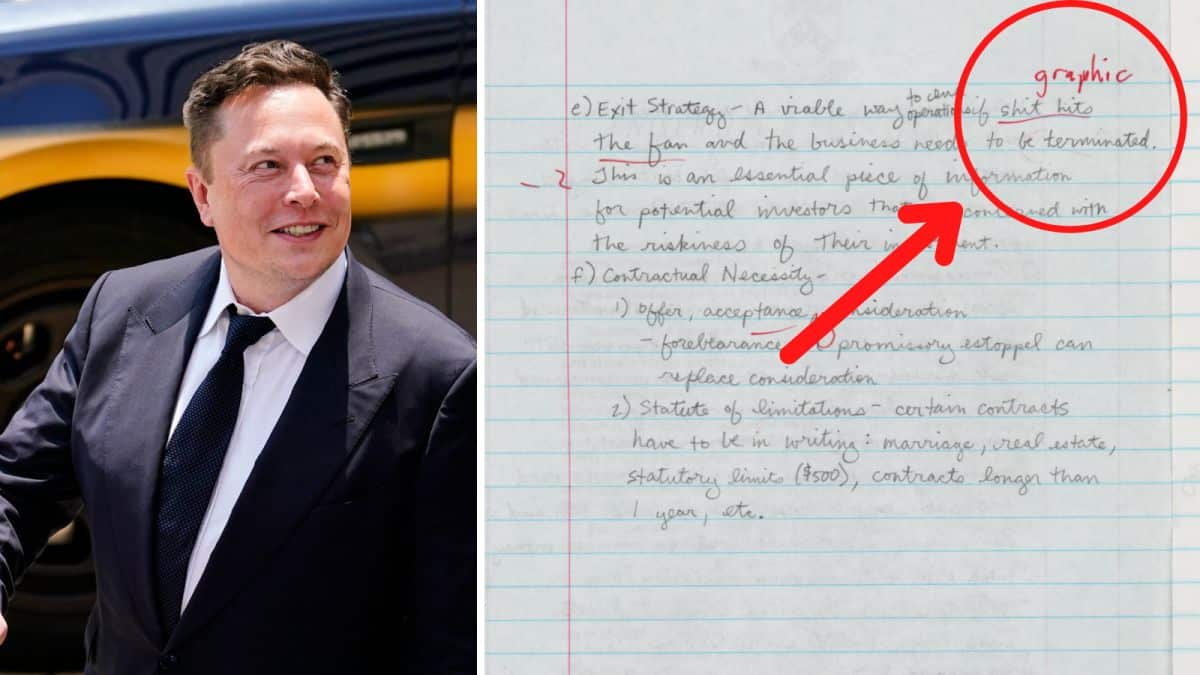 graphic
e) Exit Strategy - A viable way to operations if shit hits
the fan and the business needs to be terminated.
-2 This is an essential piece of information
for potential investors that concerned with
the riskiness of their
f) Contractual Necessity -
1) offer, acceptance, consideration
- forebearance promissory estoppel can
replace consideration
2) Statute of limitations - certain contracts
have to be in writing: marriage, real estate,
statutory limits ($500), contracts longer than
1 year, etc.